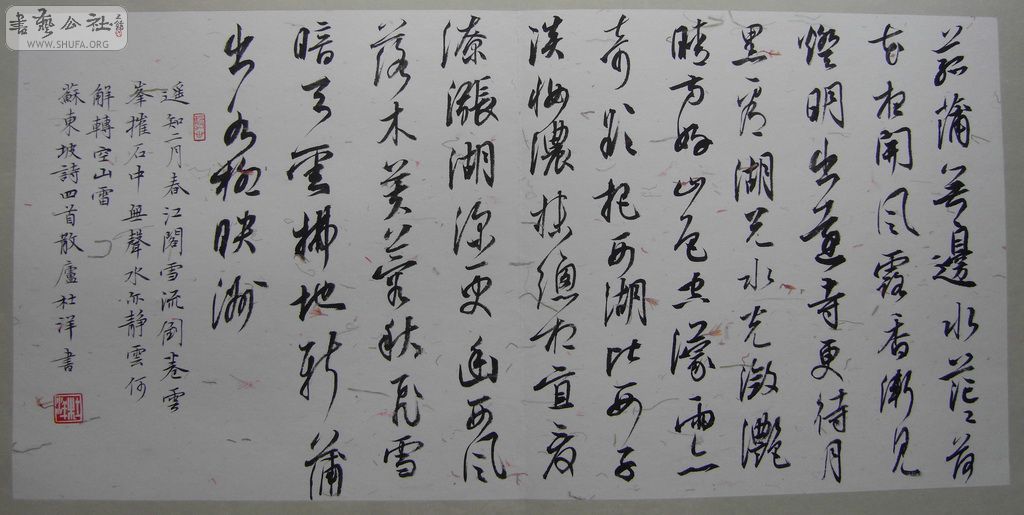 書藝公社
WWW.SHUFA.ORG
菰蒲無邊水茫茫荷
花夜開風露香漸見
燈明出遠寺更待月
黑看湖光水光瀲灧
晴方好山色空濛雨亦
奇欲把西湖比西子
淡妝濃抹總相宜夜
潦漲湖深更幽西風
落木芙蓉秋飛雪
暗天雲拂地新蒲
出水柳映洲
遥知二月春江闊雪浪倒卷雲
峯摧石中無聲水亦静雲何
解轉空山雷
蘇東坡詩四首散廬杜洋書